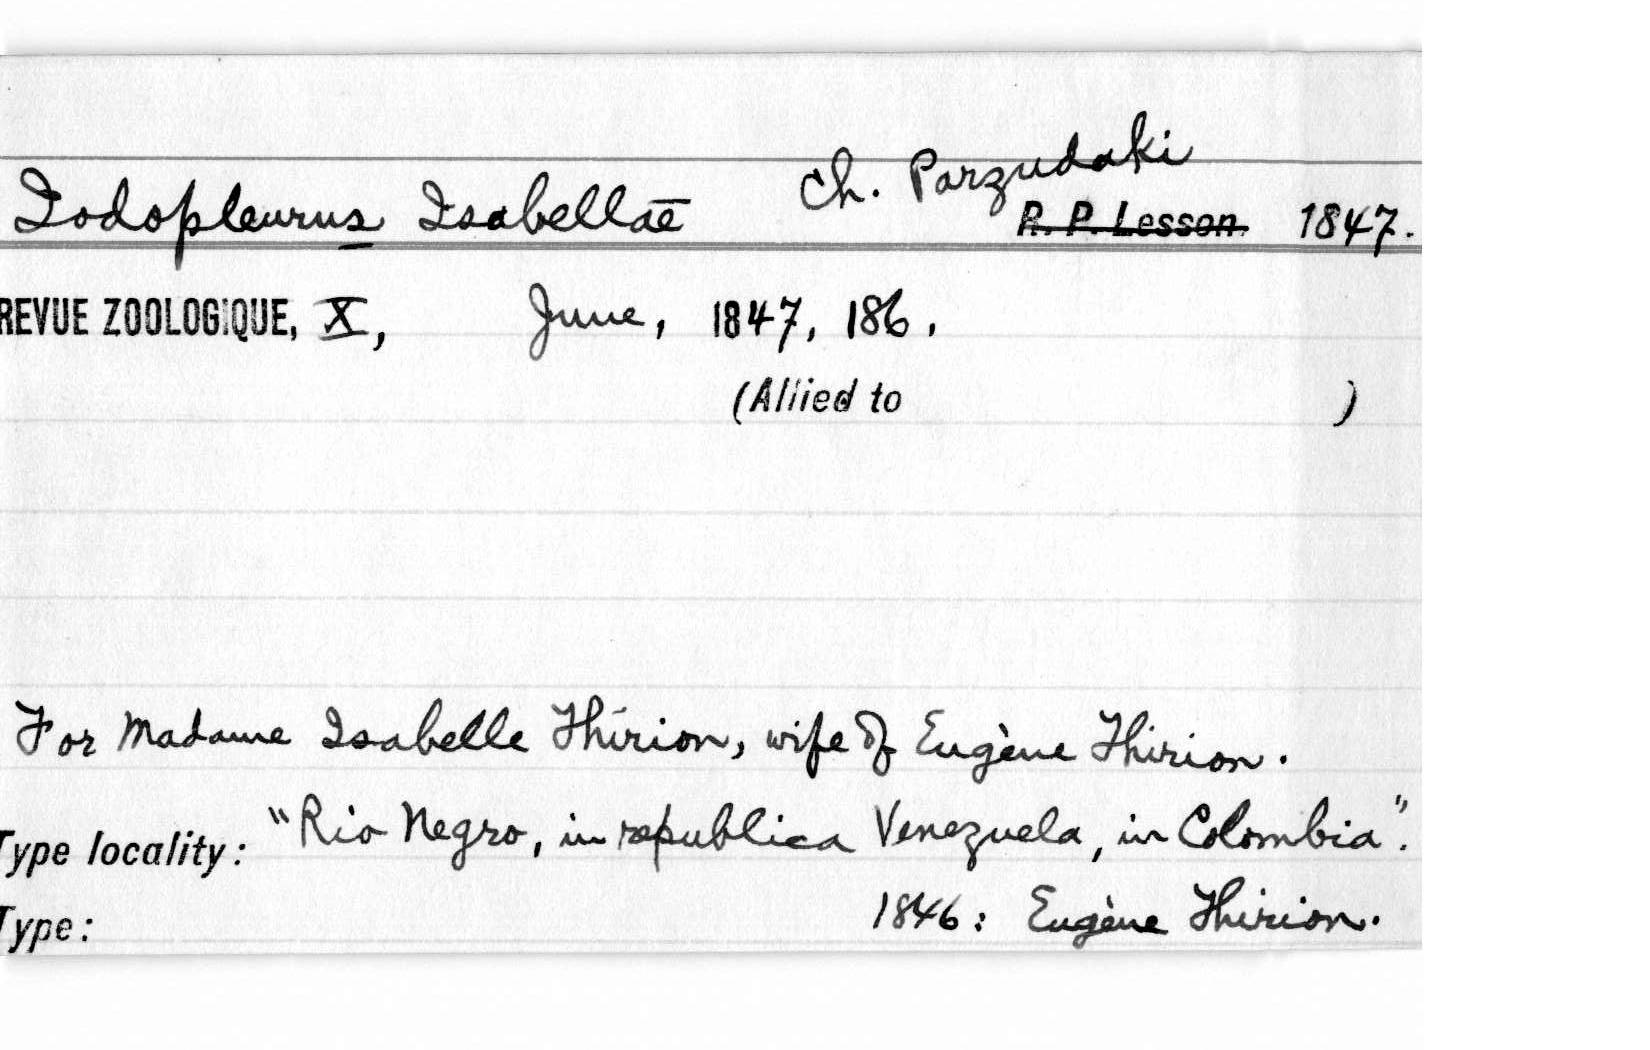 Iodopleurus Isabellae Ch. Parzudaki
R. P. Lesson 1847.
REVUE ZOOLOGIQUE, X, June, 1847, 186.
(Allied to )
For Madame Isabelle Thirion, wife of Eugène Thirion.
Type locality: "Rio Negro, in republica Venezuela, in Colombia".
Type: 1846: Eugène Thirion.